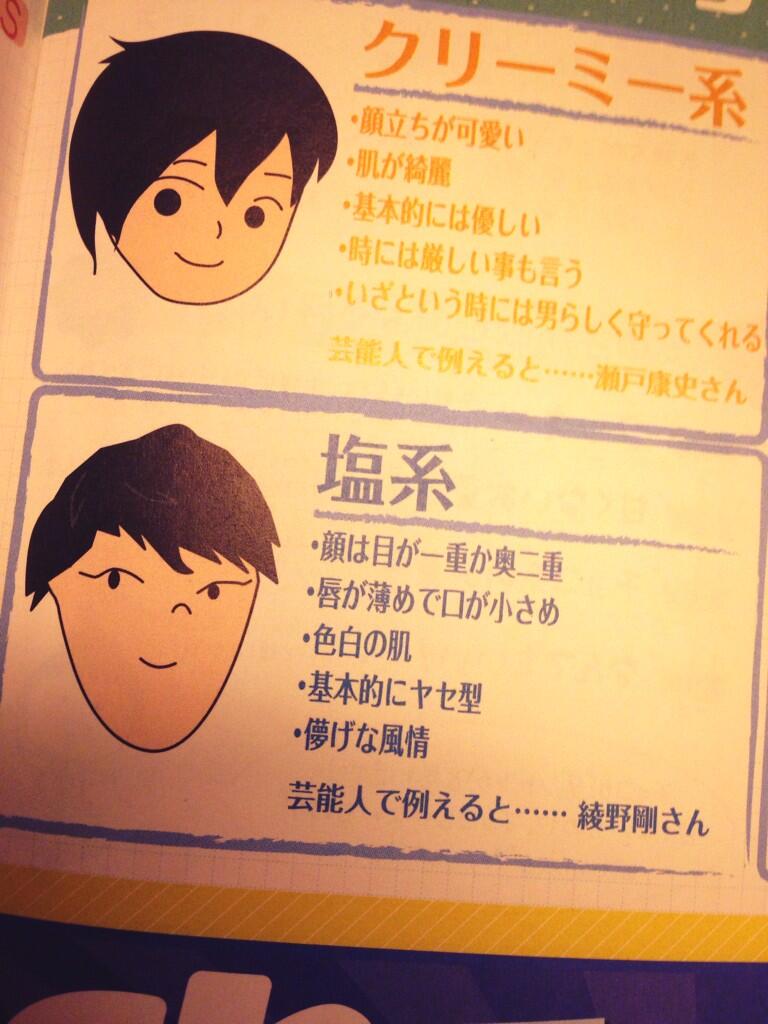 S
クリーミー系
・顔立ちが可愛い
・肌が綺麗
・基本的には優しい
・時には厳しい事も言う
・いざという時には男らしく守ってくれる
芸能人で例えると……瀬戸康史さん
塩系
・顔は目が一重か奥二重
・唇が薄めで口が小さめ
・色白の肌
・基本的にヤセ型
・儚げな風情
芸能人で例えると…… 綾野剛さん